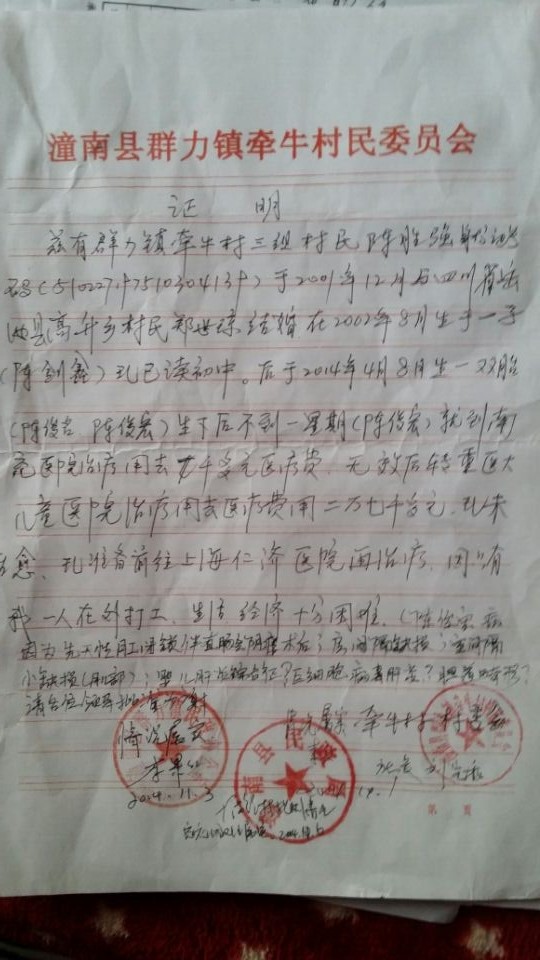 潼南县群力镇牵牛村民委员会
证 明
兹有群力镇牵牛村三组村民陈胜强身份证号
码(510227197510304139)于2001年12月与四川省岳
池县高升乡村民郑世琼结婚在2002年8月生于一子
(陈剑鑫)现已读初中。后于2014年4月8日生一双胎
(陈俊吉 陈俊宏)生下后不到一星期(陈俊宏)就到南
充医院治疗用去 千多元医疗费,无效后转重医大
儿童医院治疗用去医疗费用二万七千多元,现未
愈,现准备前往上海仁济医院再治疗,因只有
我一人在外打工,生活经济十分困难,(陈俊宏病
因为先天性肛门闭锁伴直肠会阴瘘术后;房间隔缺损;室间隔
小缺损(肌部);婴儿肝炎综合征?巨细胞病毒肝炎?胆管 ?
请各位领导批准 谢
情况属实
2014.11.3
情况属实 牵牛村 村委会
潼南县民政局
第 页